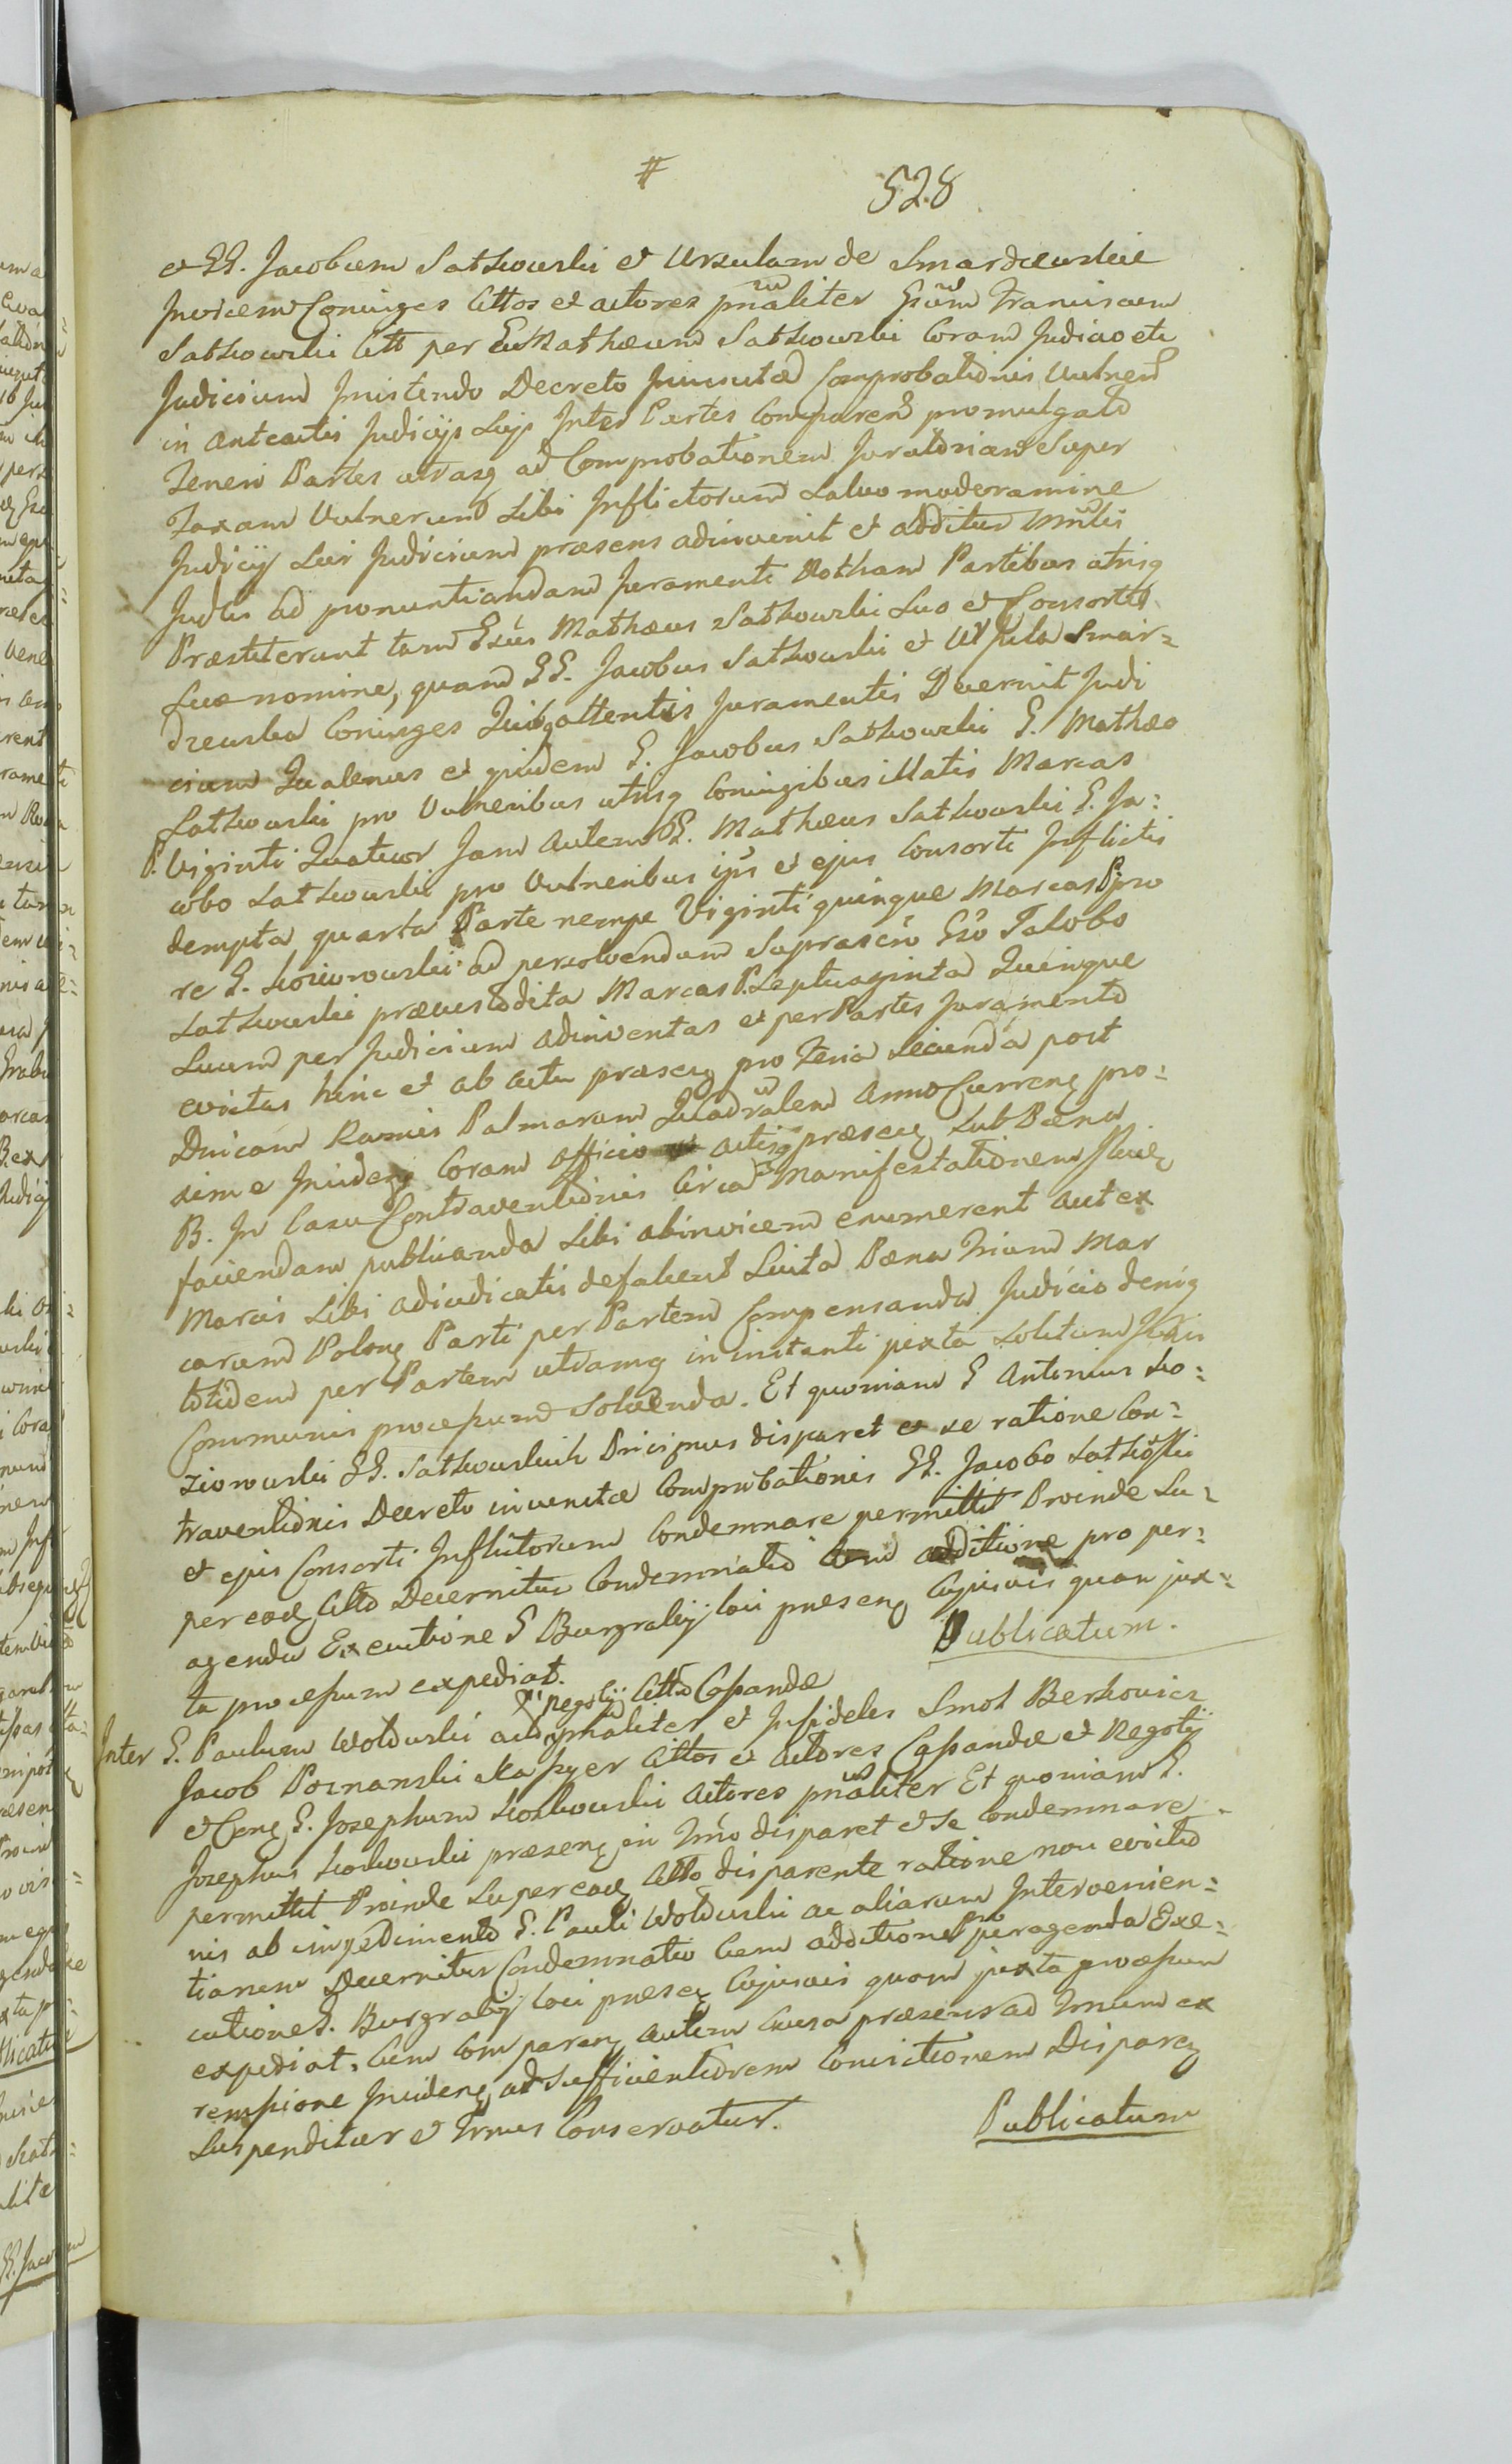 #
528
et GG. Jacobum Satkowski et Ursulam de Smardzewskie
Invicem Conjuges Cittos et actores pnaliter Gsum Franciscum
Satkowski Citt per G. Mathæum Satkowski Coram Judicio etc
Judicium Insistendo Decreto Comprobationis Vulner
in anteactis Judicijs Suis Inter Partes Comparen promulgato
Teneri Partes utrasq ad Comprobationem Juratoriam Super
Taxam Vulnerum Sibi Inflictorum Salvo moderamine
Judicij Sui Judicium præsens adinvenit et additur Mnlis
Judlis ad pronuntiandam Juramenti Rotham Partibus utrisq
Præstiterunt tam Gsus Mathæus Satkowski Suo et Consortis
Suæ nomine, quam GG. Jacobus Satkowski et Ursula Smar=
dzewska Conjuges Quibq attentis Juramentis Decernit Judi
cium Quatenus et quidem G. Jacobus Satkowski G. Mathæo
Satkowski pro Vulneribus utrisq Conjugibus illatis Marcas
P. Viginti Quatuor Jam Autem G. Mathæus Satkowski G. Ja=
cobo Satkowski pro Vulneribus ipsi et ejus Consorti Inflictis
dempta quarta Parte nempe Viginti quinque Marcas P. pro
re G. Koziorowski ad persolvendum Suprascrio Gso Jakobo
Satkowski præcustodita Marcas P. Septuaginta Quinque
Suum per Judicium adinventas et per Partes Juramento
evictas hinc et ab actu præsen pro Feria Secunda post
Dnicam Ramis Palmarum Quadralem Anno Curren pro=
xime Inciden Coram Officio actisq præsen Sub Pæna
B. In Casu Contraventionis Circa Manifestationem
faciendam publicanda Sibi abinvicem enumerent aut ex
Marcis Sibi adiudicatis defalcent Luita Pæna Trium Mar
carum Polon Parti per Partem Compensanda Judicio deniq
totidem per Partem utramq in instanti juxta Solitum Juris
Communis processum Solvenda. Et quoniam G Antonius Ko=
ziorowski GG. Satkowskich Pricipus disparet et se ratione Con=
traventionis Decreto inventæ Comprobationis GG. Jacobo Satkowski
et ejus Consorti Inflictorum Condemnare permittit Proinde Su=
per eod Citto Decernitur Condemnatio Cum additione pro per=
agenda Executione G Burgrabij loci præsen Cujusvis quam jux=
ta processum expediat. Publicatum.
Negotij Citto Cassandæ
Inter G. Paulum Wolowski act pnaliter et Infideles Smol Berkowicz
Jacob Poznanski Kasyer Cittos et Actores Cassandæ et Negotij
et Gen G. Josephum Koskowski Actores pnaliter Et quoniam G.
Josephus Koskowski præsen in Trno disparet et Se Condemnare
permittit Proinde Super eod Citto disparente ratione non evictio
nis ab impedimento G. Pauli Wolowski ac aliarum Intervenien=
tiarum Decernitur Condemnatio Cum additione pro peragenda Exe=
cutione G. Burgrabij loci præsen Cujusvis quam juxta processum
expediat, Cum Comparen autem Causa præsens ad Trnum ex
remissione Inciden ad Sufficientiorem Convictionem Disparen
Suspenditur et Trnus Conservatur.
Publicatum